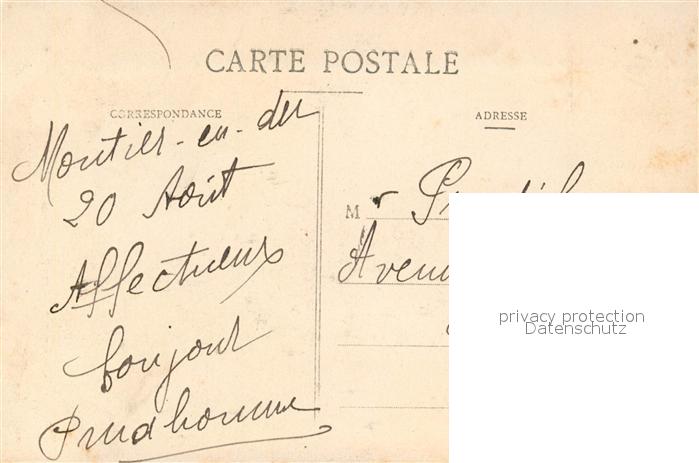 CARTE POSTALE
CORRESPONDANCE
ADRESSE
Montier-en-der
20 Août
Affectueux
bonjour
Prudhomme
Mr
privacy protection
Datenschutz